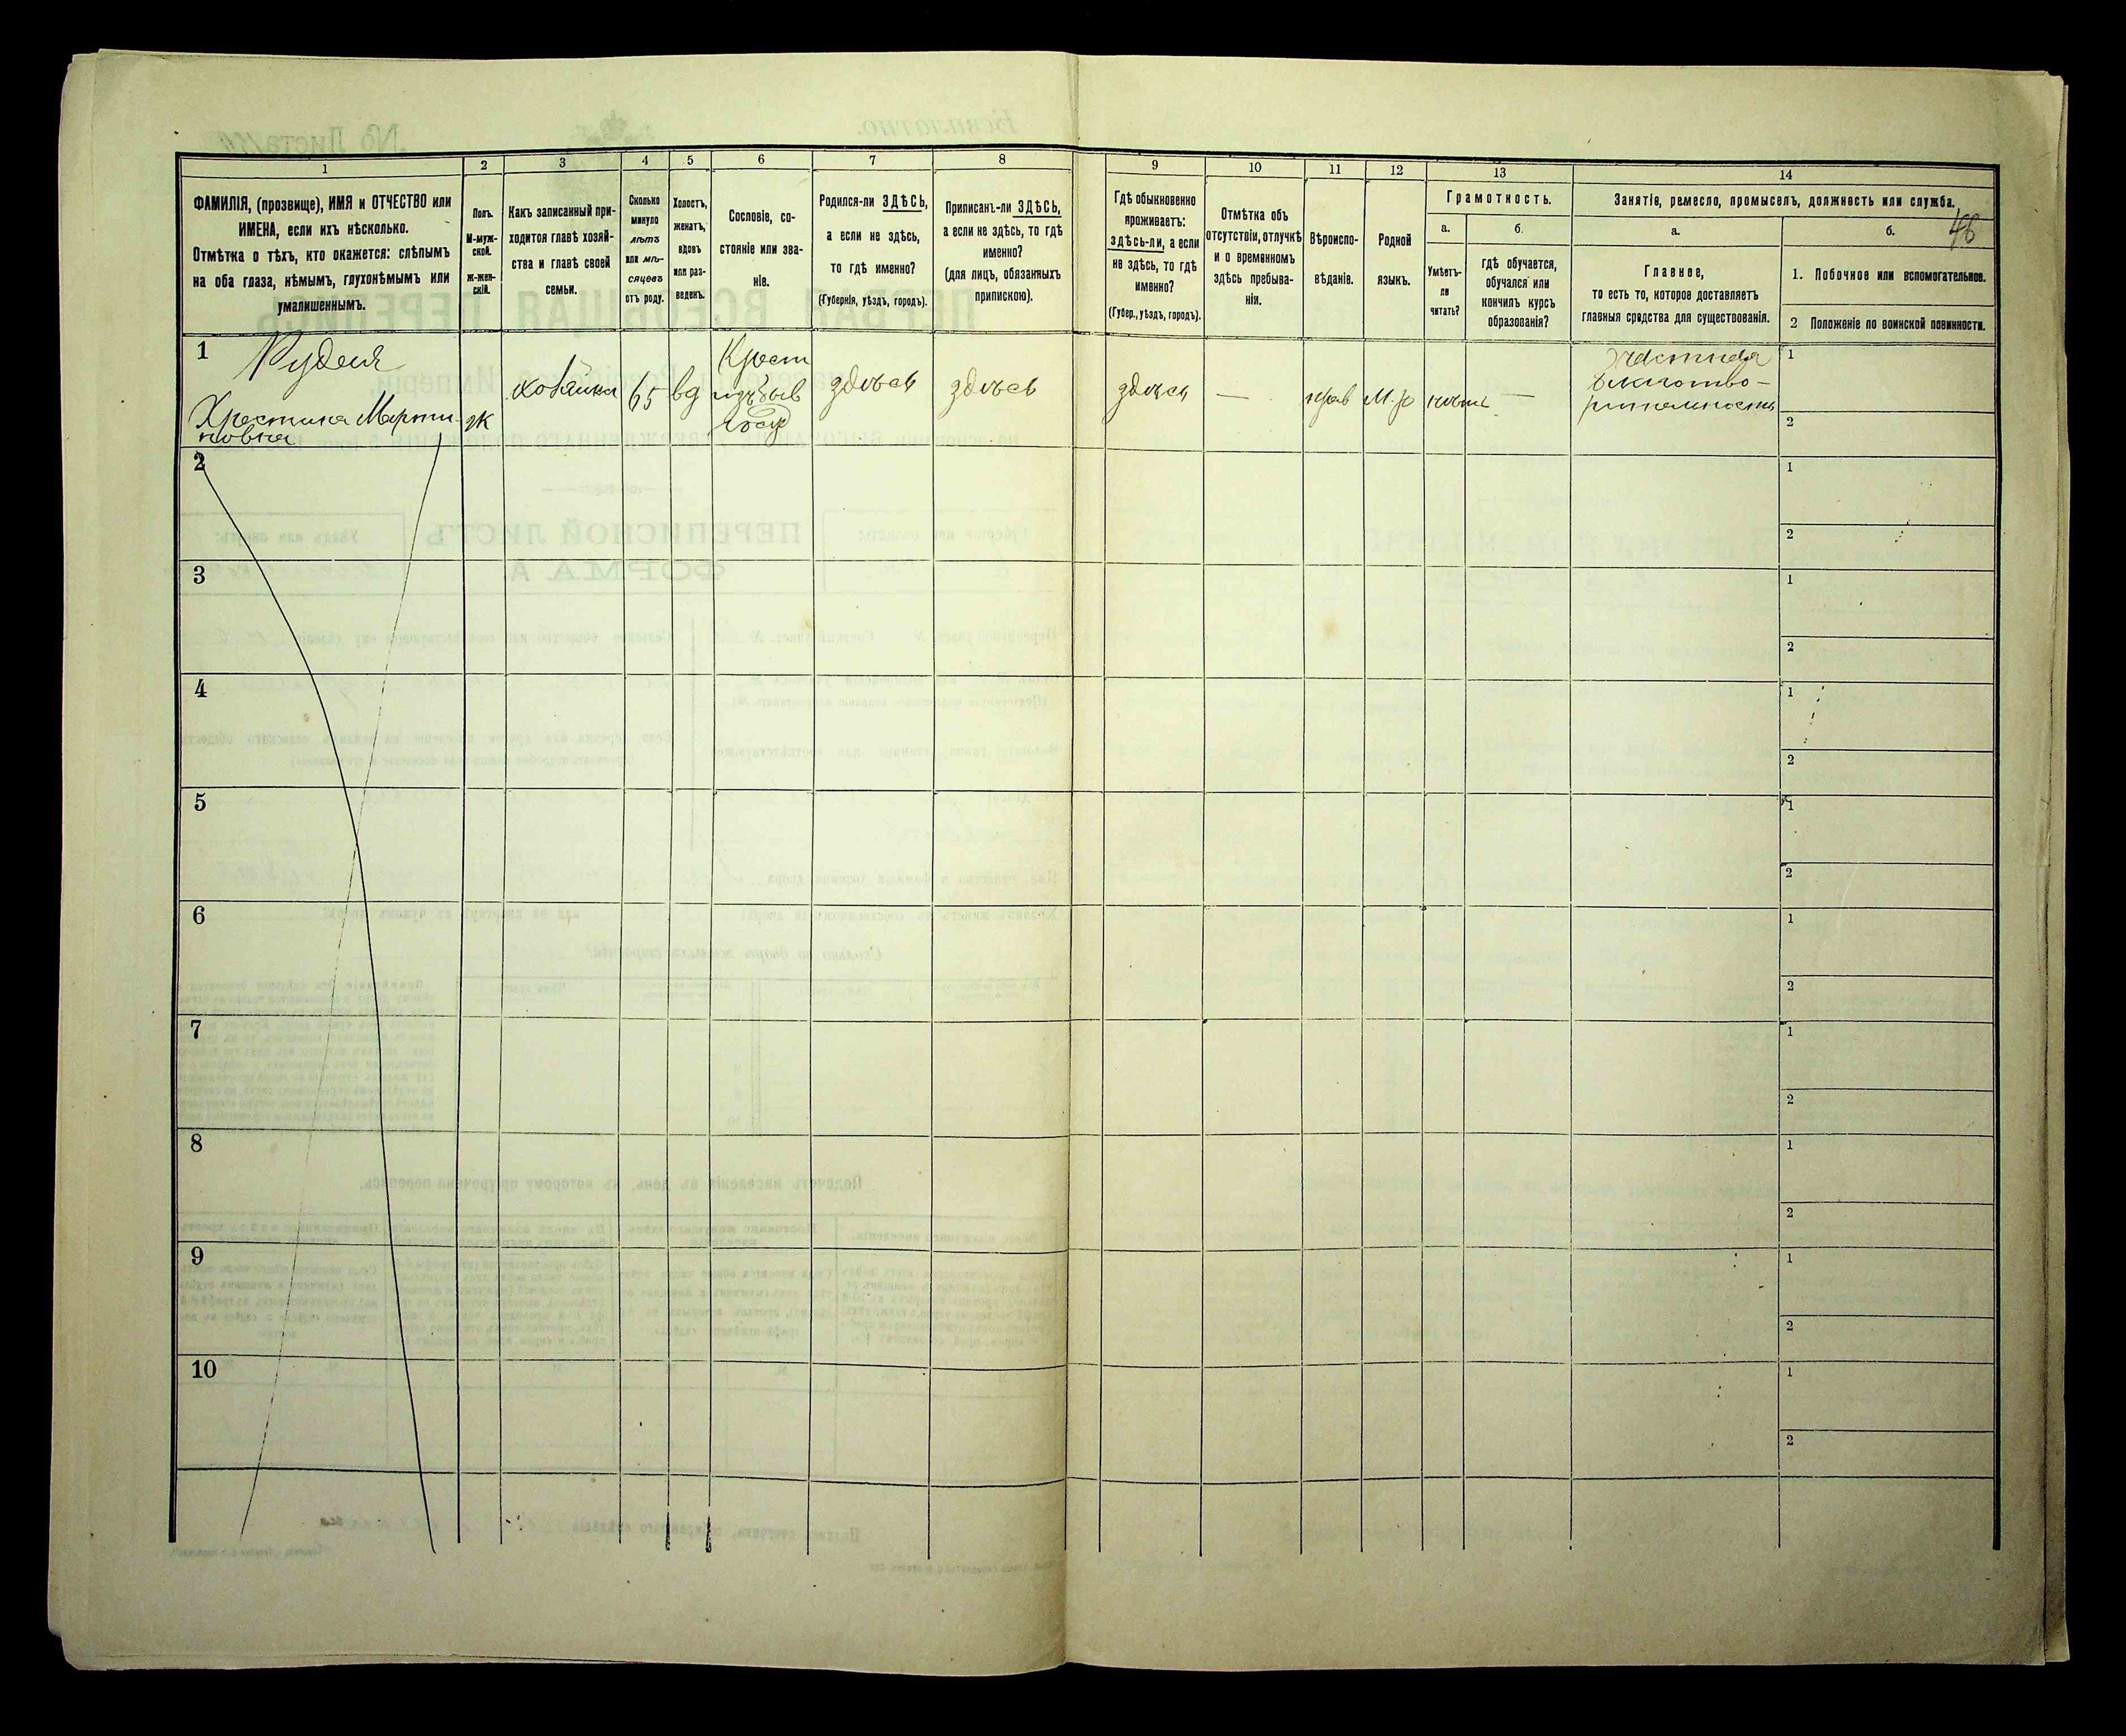 1 2 3 4 5 6 7 8 9 10 11 12 13 14
ФАМИЛІЯ, (прозвище), ИМЯ и ОТЧЕСТВО или
ИМЕНА, если ихъ нѣсколько.
Отмѣтка о тѣхъ, кто окажется: слѣпымъ
на оба глаза, нѣмымъ, глухонѣмымъ или
умалишеннымъ.
Полъ.
М-муж-
ской.
Ж-жен-
скій.
Какъ записанный при-
ходится главѣ хозяй-
ства и главѣ своей
семьи.
Сколько
минуло
лѣтъ
или мѣ-
сяцевъ
отъ роду.
Холостъ,
женатъ,
вдовъ
или раз-
веденъ.
Сословіе, со-
стояніе или зва-
ніе.
Родился-ли ЗДѢСЬ,
а если не здѣсь,
то гдѣ именно?
(Губернія, уѣздъ, городъ).
Приписанъ-ли ЗДѢСЬ,
а если не здѣсь, то гдѣ
именно?
(для лицъ, обязанныхъ
припискою).
Гдѣ обыкновенно
проживаетъ:
здѣсь-ли, а если
не здѣсь, то гдѣ
именно?
(Губер., уѣздъ, городъ).
Отмѣтка объ
отсутствіи, отлучкѣ
и о временномъ
здѣсь пребыва-
ніи.
Вѣроиспо-
вѣданіе.
Родной
языкъ.
Грамотность.
а.
Умѣетъ-
ли
читать?
б.
гдѣ обучается,
обучался или
кончилъ курсъ
образованія?
Занятіе, ремесло, промыселъ, должность или служба.
а.
Главное,
то есть то, которое доставляетъ
главныя средства для существованія.
б.
46
1. Побочное или вспомогательное.
2 Положеніе по воинской повинности.
1
Рудая
Хрестина Марти
новна
ж
хозяйка
65
вд
Крест
изъ быв
госуд
здѣсь
здѣсь
здѣсь
—
прав
м.р
нѣтъ
—
частная
благотво-
рительность
1
2
2
1
2
3
1
2
4
1
2
5
1
2
6
1
2
7
1
2
8
1
2
9
1
2
10
1
2